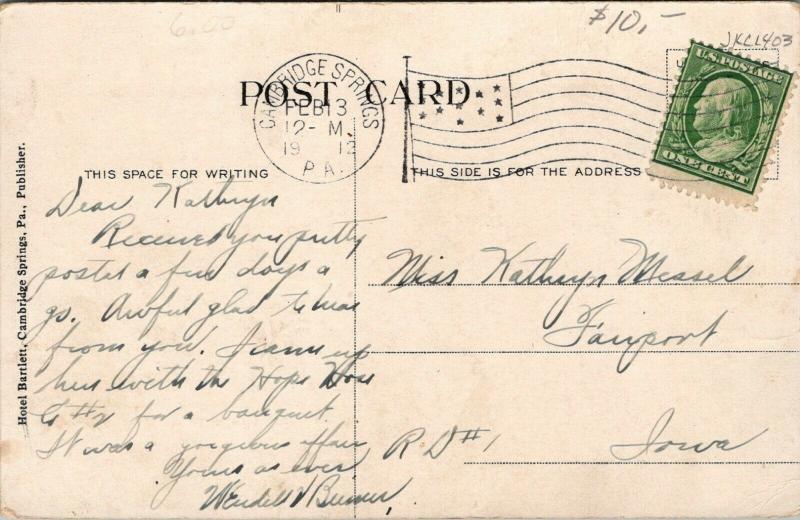 6.00
$10,-
JKCL403
POST CARD
CAMBRIDGE SPRINGS
FEB 13
12- M
19 12
PA.
U.S. POSTAGE
ONE CENT
THIS SPACE FOR WRITING
THIS SIDE IS FOR THE ADDRESS
Hotel Bartlett, Cambridge Springs, Pa., Publisher.
Dear Kathryn
Received your pretty
postal a few days a
go. Awful glad to hear
from you. I came up
here with the Hope Hose
Co #2 for a banquet.
It was a gorgeous affair
Yours as ever
Wendell
Miss Kathryn Messel
Fairport
R D #1
Iowa